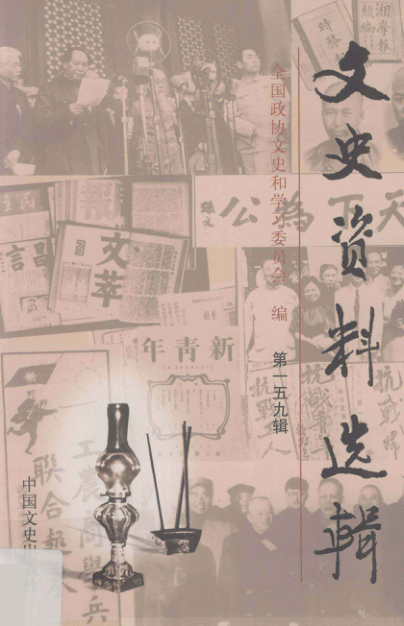 文史资料选辑
全国政协文史和学习委员会 编
第一五九辑
中国文史出
湘學報
時務
天下為公
孫文
昌言
報
文萃
新青年
工農商學兵
聯合
抗戰